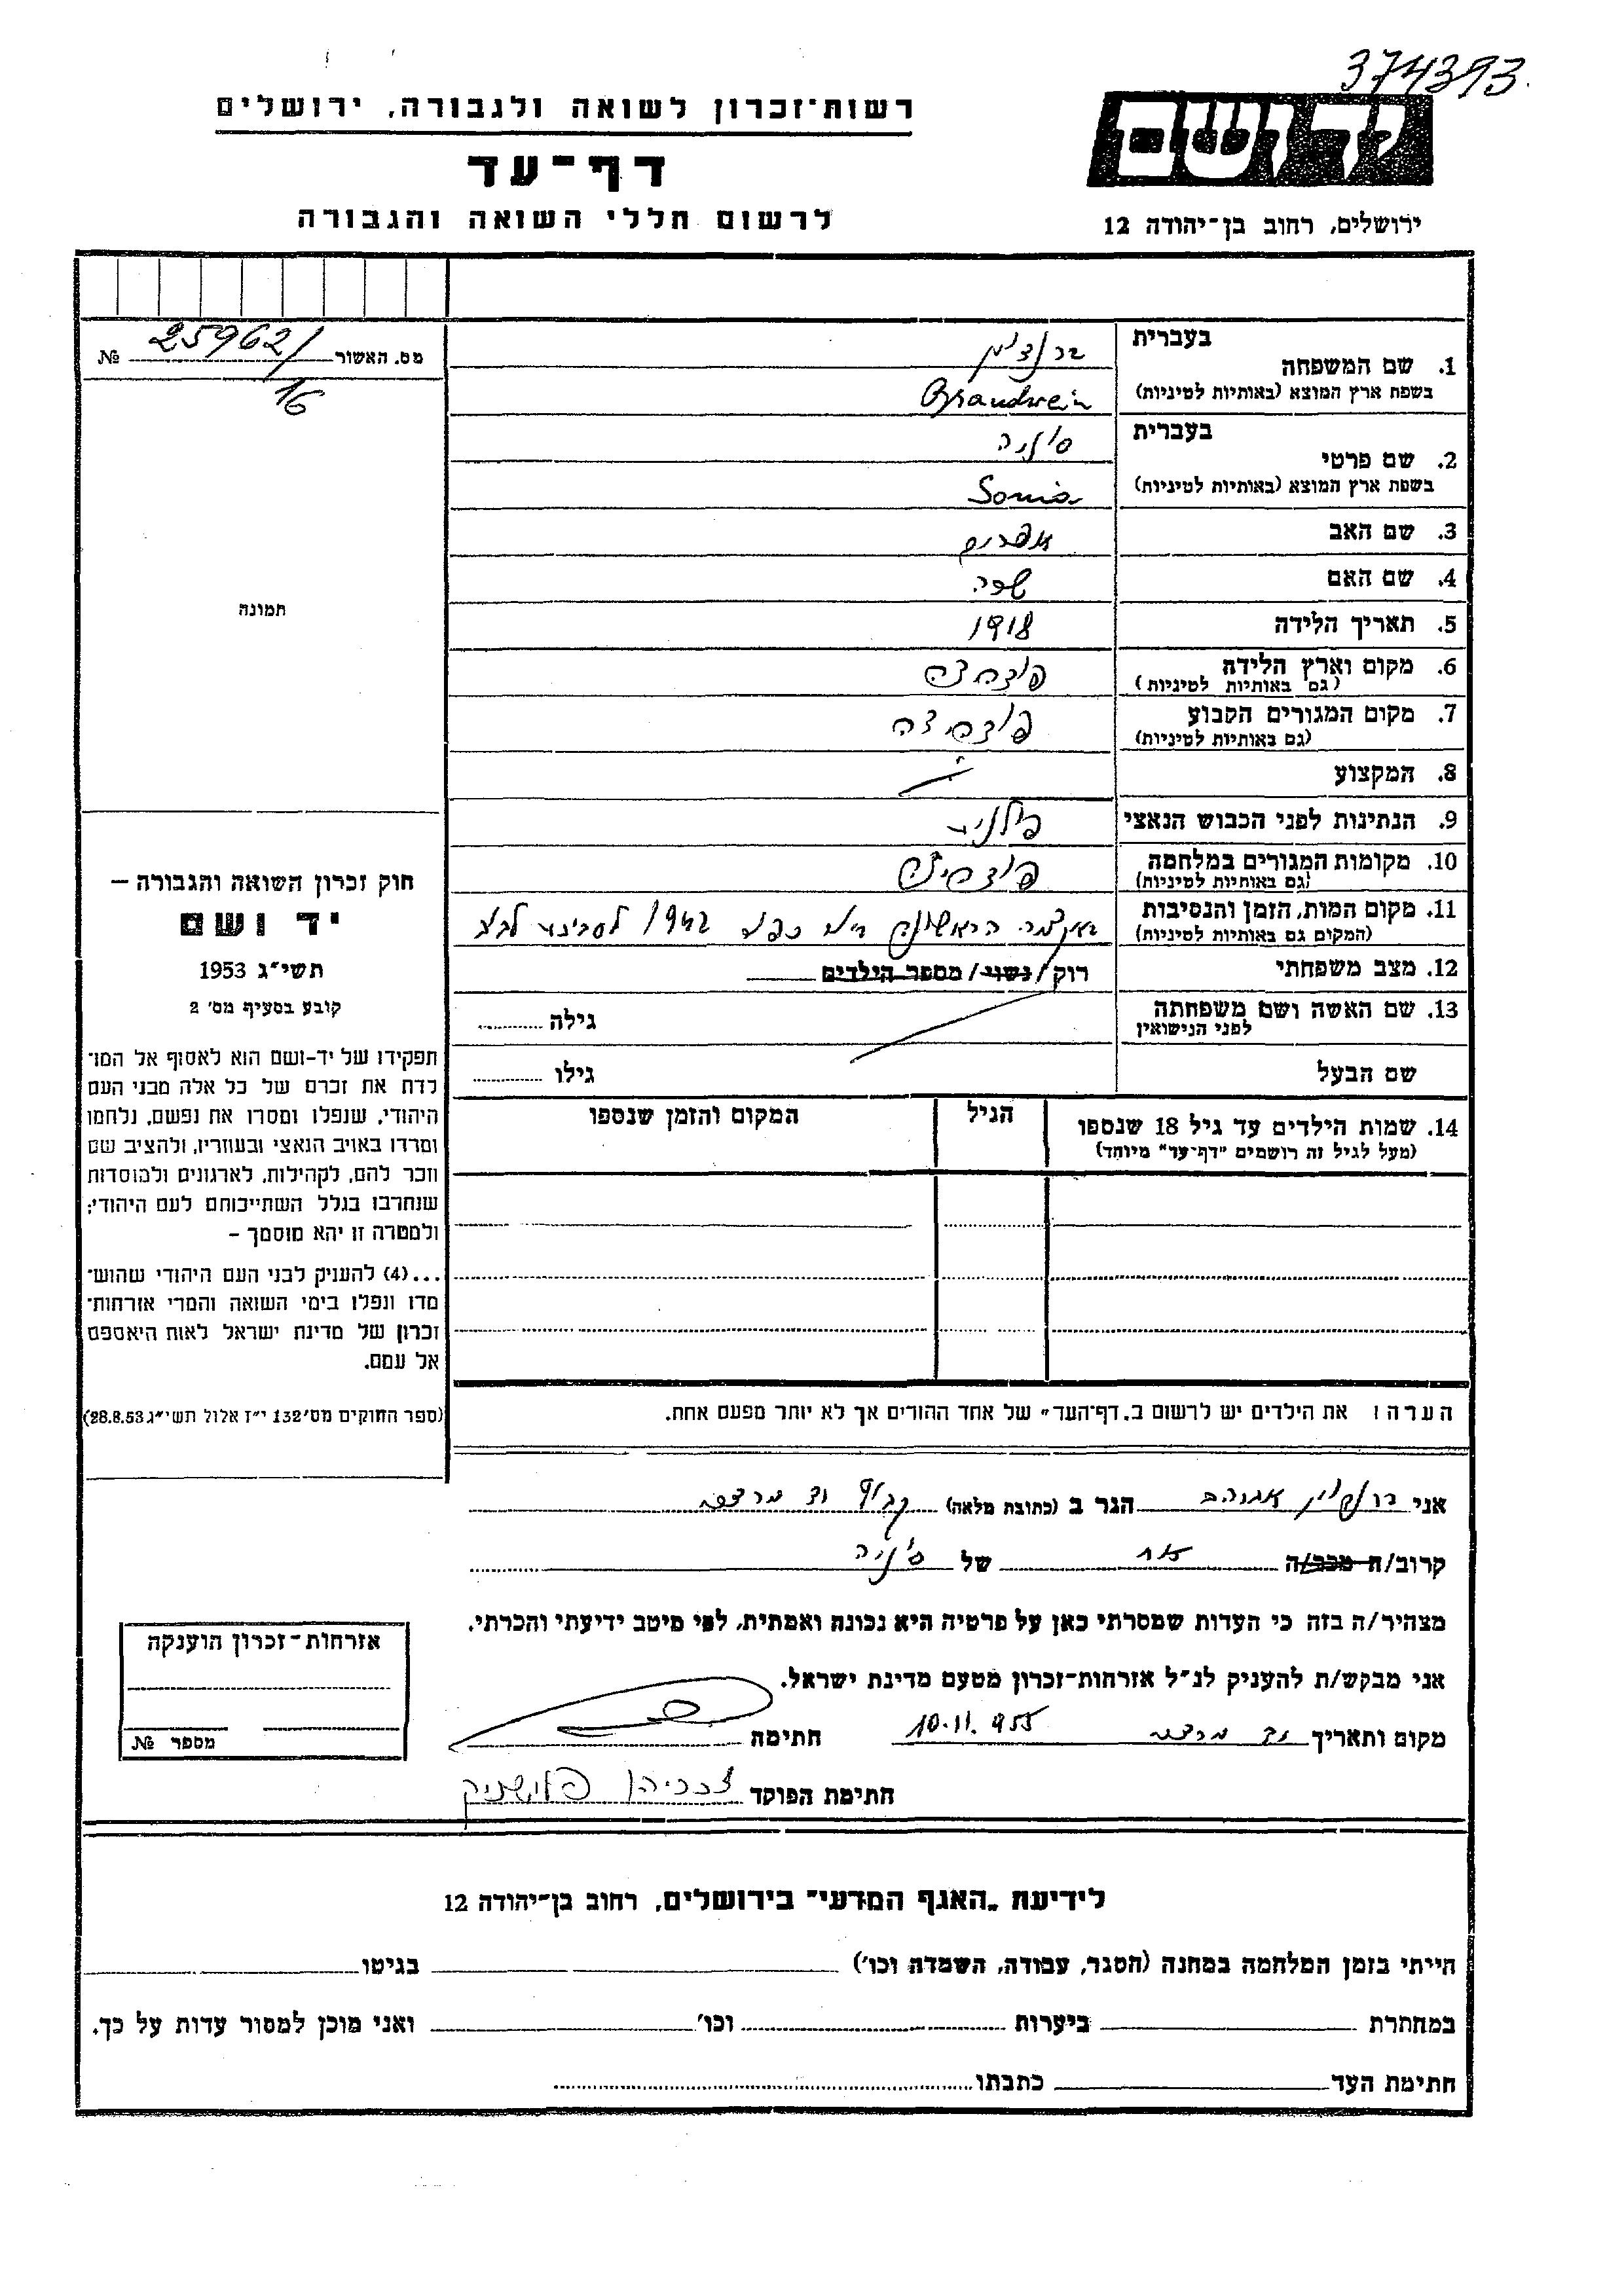 374393
רשות־זכרון לשואה ולגבורה, ירושלים
דף־עד
לרשום חללי השואה והגבורה
יד ושם
ירושלים, רחוב בן־יהודה 12
מס. האשור 25962/16 №
תמונה
חוק זכרון השואה והגבורה —
יד ושם
תשי"ג 1953
קובע בסעיף מס' 2
תפקידו של יד-ושם הוא לאסוף אל המו־
לדת את זכרם של כל אלה מבני העם
היהודי, שנפלו ומסרו את נפשם, נלחמו
ומרדו באויב הנאצי ובעוזריו, ולהציב שם
וזכר להם, לקהילות, לארגונים ולמוסדות
שנחרבו בגלל השתייכותם לעם היהודי;
ולמטרה זו יהא מוסמך —
...(4) להעניק לבני העם היהודי שהוש־
מדו ונפלו בימי השואה והמרי אזרחות־
זכרון של מדינת ישראל לאות היאספם
אל עמם.
(ספר החוקים מס' 132 י"ז אלול תשי"ג 28.8.53)
בעברית
1. שם המשפחה
בשפת ארץ המוצא (באותיות לטיניות) Brandwein
בעברית
2. שם פרטי סוניה
בשפת ארץ המוצא (באותיות לטיניות) Sonia
3. שם האב אפרים
4. שם האם שפרה
5. תאריך הלידה 1918
6. מקום וארץ הלידה
(גם באותיות לטיניות)
7. מקום המגורים הקבוע
(גם באותיות לטיניות)
8. המקצוע
9. הנתינות לפני הכבוש הנאצי פולנית
10. מקומות המגורים במלחמה
(גם באותיות לטיניות)
11. מקום המות, הזמן והנסיבות הראשונה 1942
(המקום גם באותיות לטיניות)
12. מצב משפחתי רוק/נשוי/מספר הילדים
13. שם האשה ושם משפחתה גילה
לפני הנישואין
שם הבעל גילו
14. שמות הילדים עד גיל 18 שנספו הגיל המקום והזמן שנספו
(מעל לגיל זה רושמים "דף־עד" מיוחד)
הערה: את הילדים יש לרשום ב„דף־העד" של אחד ההורים אך לא יותר מפעם אחת.
אני ברנדווין אברהם הגר ב (כתובת מלאה)
קרוב/ה מכר/ה אח של סוניה
מצהיר/ה בזה כי העדות שמסרתי כאן על פרטיה היא נכונה ואמתית, לפי מיטב ידיעתי והכרתי.
אני מבקש/ת להעניק לנ"ל אזרחות-זכרון מטעם מדינת ישראל.
מקום ותאריך 10.11.955 חתימה
חתימת הפוקד
אזרחות-זכרון הוענקה
מספר №
לידיעת „האגף המדעי" בירושלים, רחוב בן־יהודה 12
הייתי בזמן המלחמה במחנה (הסגר, עבודה, השמדה וכו') בגיטו
במחתרת ביערות וכו' ואני מוכן למסור עדות על כך.
חתימת העד כתבתו